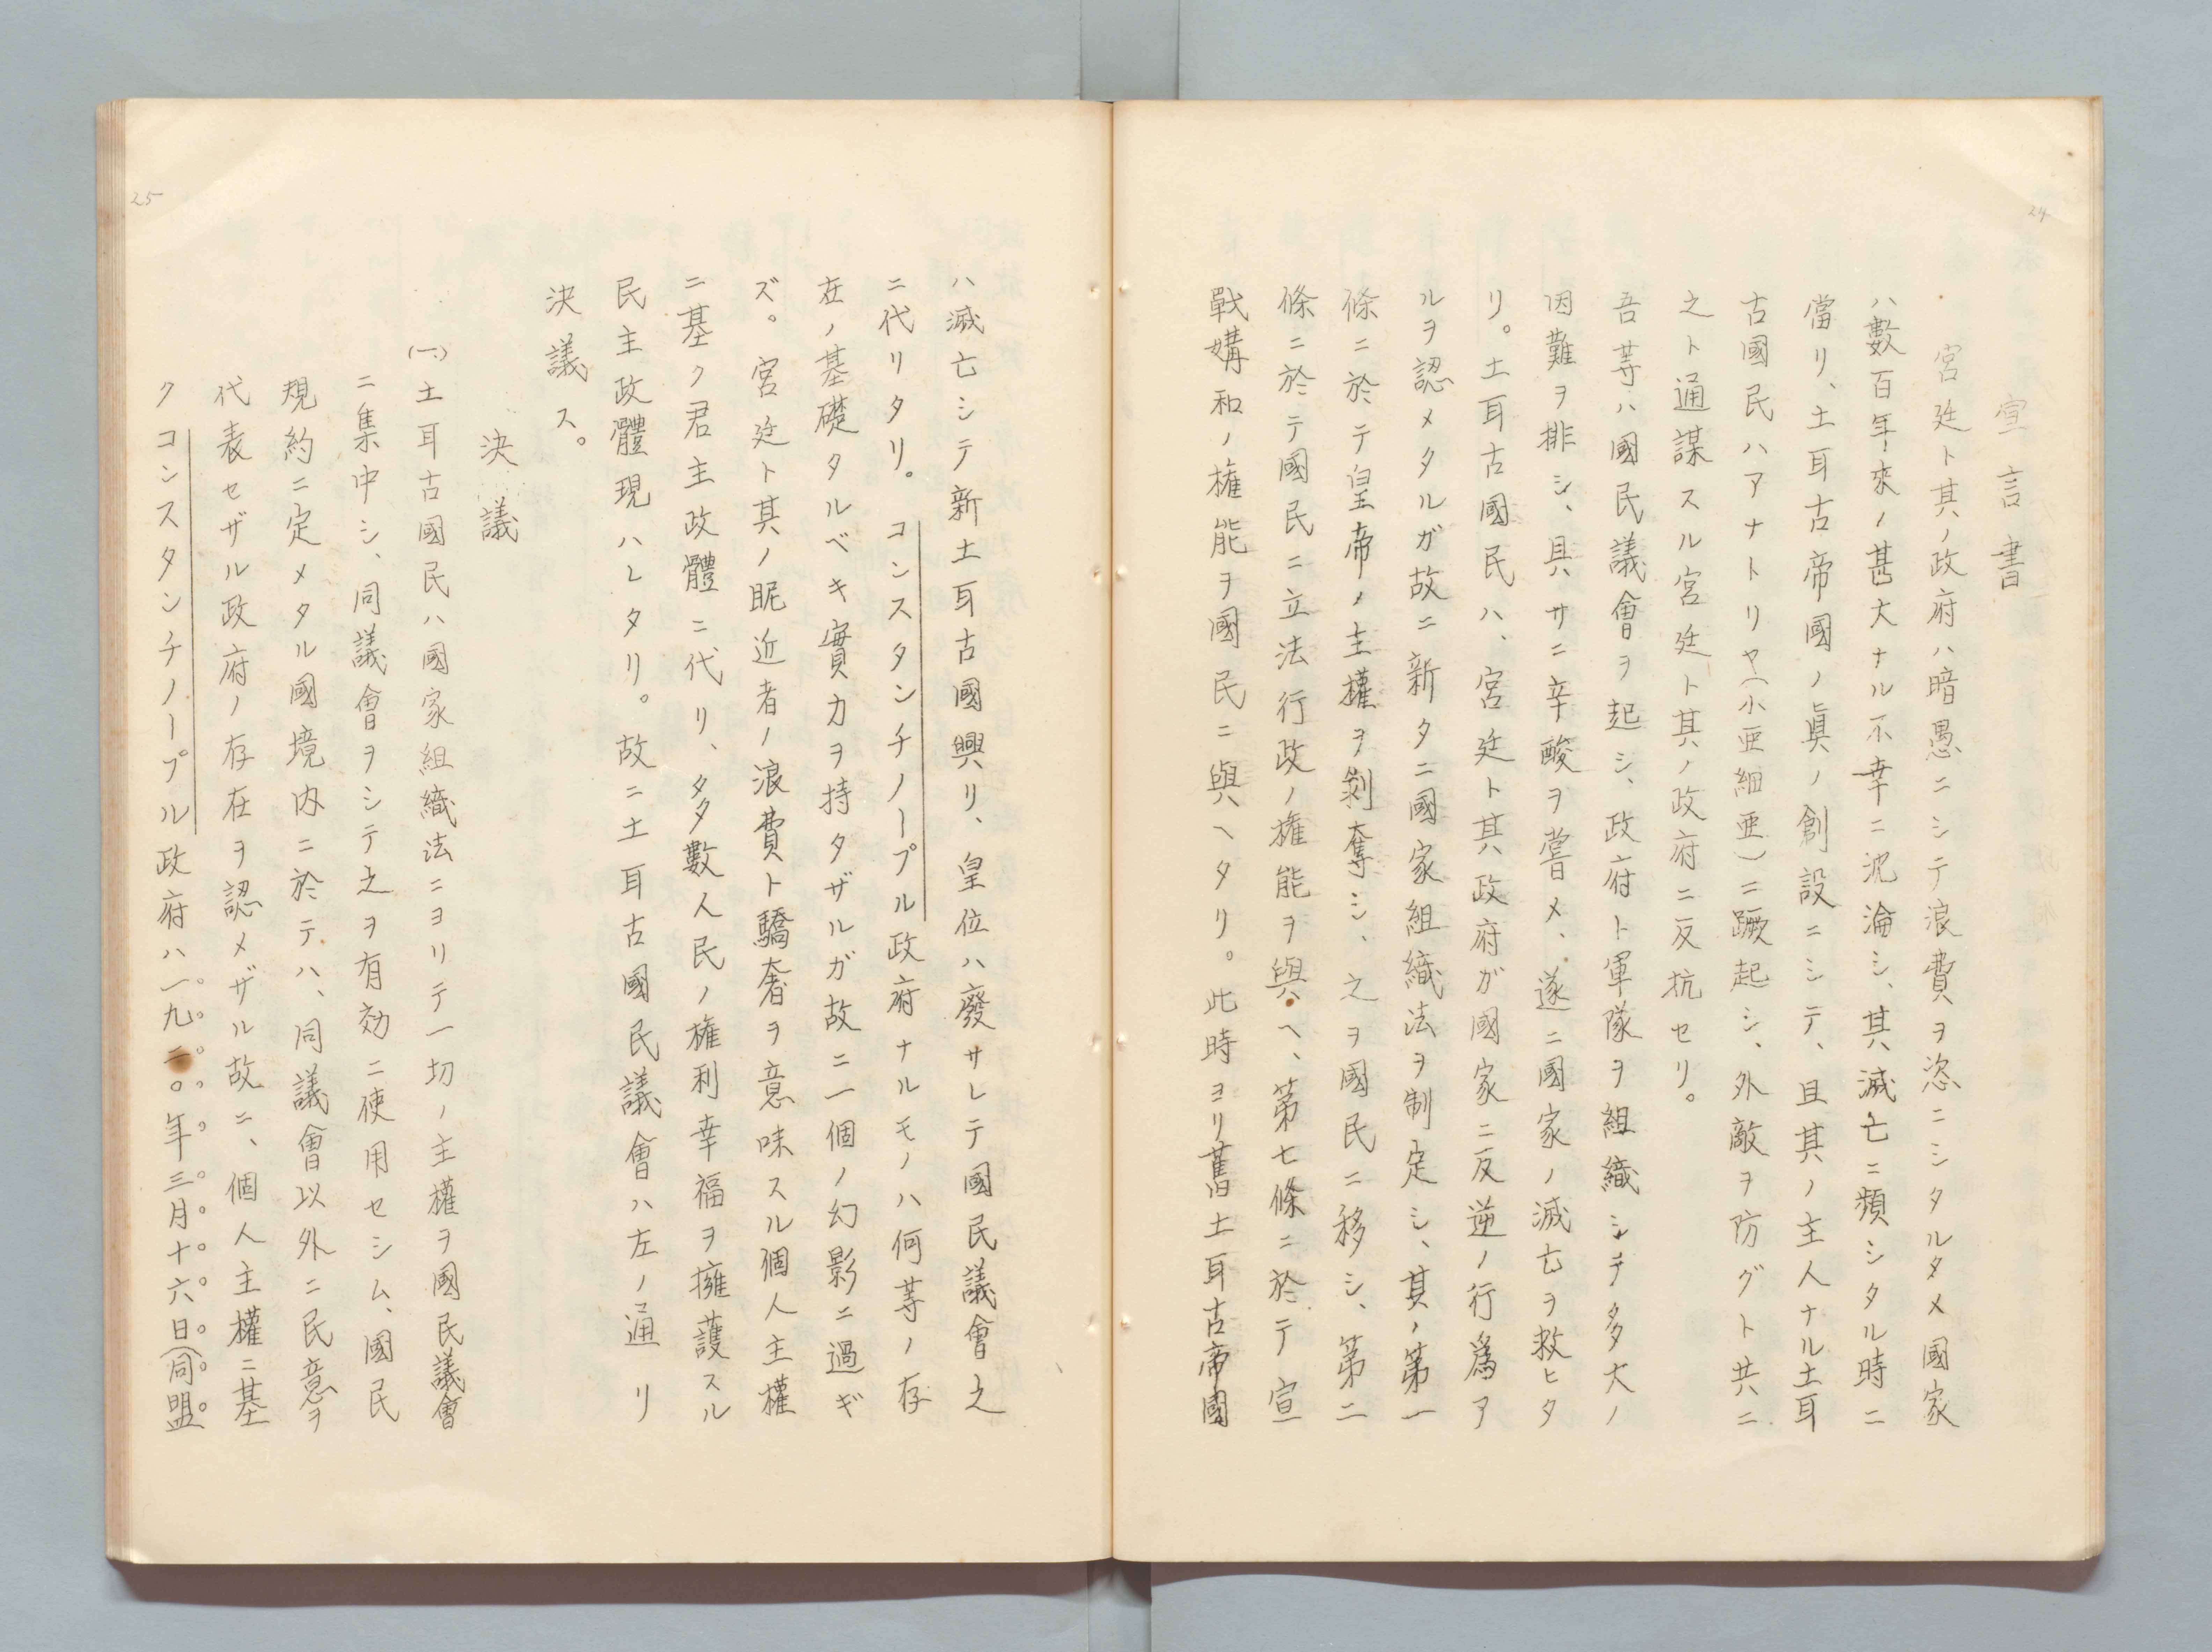 24
宣言書
宮廷ト其ノ政府ハ暗愚ニシテ浪費ヲ恣ニシタルタメ國家
ハ數百年來ノ甚大ナル不幸ニ沈淪シ、其滅亡ニ頻シタル時ニ
當リ、土耳古帝國ノ眞ノ創設ニシテ、且其ノ主人ナル土耳
古國民ハアナトリヤ(小亜細亜)ニ蹶起シ、外敵ヲ防グト共ニ
之ト通謀スル宮廷ト其ノ政府ニ反抗セリ。
吾等ハ國民議會ヲ起シ、政府ト軍隊ヲ組織シテ多大ノ
因難ヲ排シ、具サニ辛酸ヲ嘗メ、遂ニ國家ノ滅亡ヲ救ヒタ
リ。土耳古國民ハ、宮廷ト其政府ガ國家ニ反逆ノ行爲ア
ルヲ認メタルガ故ニ新タニ國家組織法ヲ制定シ、其ノ第一
條ニ於テ皇帝ノ主權ヲ剝奪シ、之ヲ國民ニ移シ、第二
條ニ於テ國民ニ立法行政ノ権能ヲ與ヘ、第七條ニ於テ宣
戰媾和ノ権能ヲ國民ニ與ヘタリ。此時ヨリ舊土耳古帝國
ハ滅亡シテ新土耳古國興リ、皇位ハ廢サレテ國民議會之
ニ代リタリ。コンスタンチノープル政府ナルモノハ何等ノ存
在ノ基礎タルベキ實力ヲ持タザルガ故ニ一個ノ幻影ニ過ギ
ズ。宮廷ト其ノ眤近者ノ浪費ト驕奢ヲ意味スル個人主權
ニ基ク君主政體ニ代リ、多數人民ノ権利幸福ヲ擁護スル
民主政體現ハレタリ。故ニ土耳古國民議會ハ左ノ通リ
決議ス。
決議
(一)土耳古國民ハ國家組織法ニヨリテ一切ノ主權ヲ國民議會
ニ集中シ、同議會ヲシテ之ヲ有効ニ使用セシム、國民
規約ニ定メタル國境内ニ於テハ、同議會以外ニ民意ヲ
代表セザル政府ノ存在ヲ認メザル故ニ、個人主權ニ基
クコンスタンチノープル政府ハ一九二〇年三月十六日(同盟
25